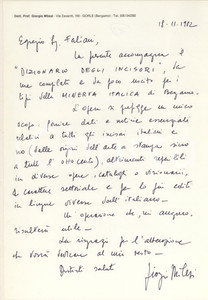 Dott. Prof. Giorgio Milesi - Via Zanchi, 100 - GORLE (Bergamo) - Tel.
18.11.1982
Egregio Sig. Fabiani,
la presente accompagna il
"DIZIONARIO DEGLI INCISORI", da
me compilato e da poco uscito per i
tipi della MINERVA ITALICA di Bergamo.
L'opera si prefigge un unico
scopo: fornire dati e notizie essenziali
relativi a tutti gli incisori italiani e
no (dalle origini dell'arte a stampa sino
a tutt'Ottocento), altrimenti reperibili
in diverse opere, cataloghi o dizionari,
a carattere settoriale e per lo più editi
in lingue diverse dall'italiano.
Un'operazione che, mi auguro,
risulterà utile.
La ringrazio per l'attenzione
che vorrà dedicare al mio testo.
Distinti saluti
Giorgio Milesi